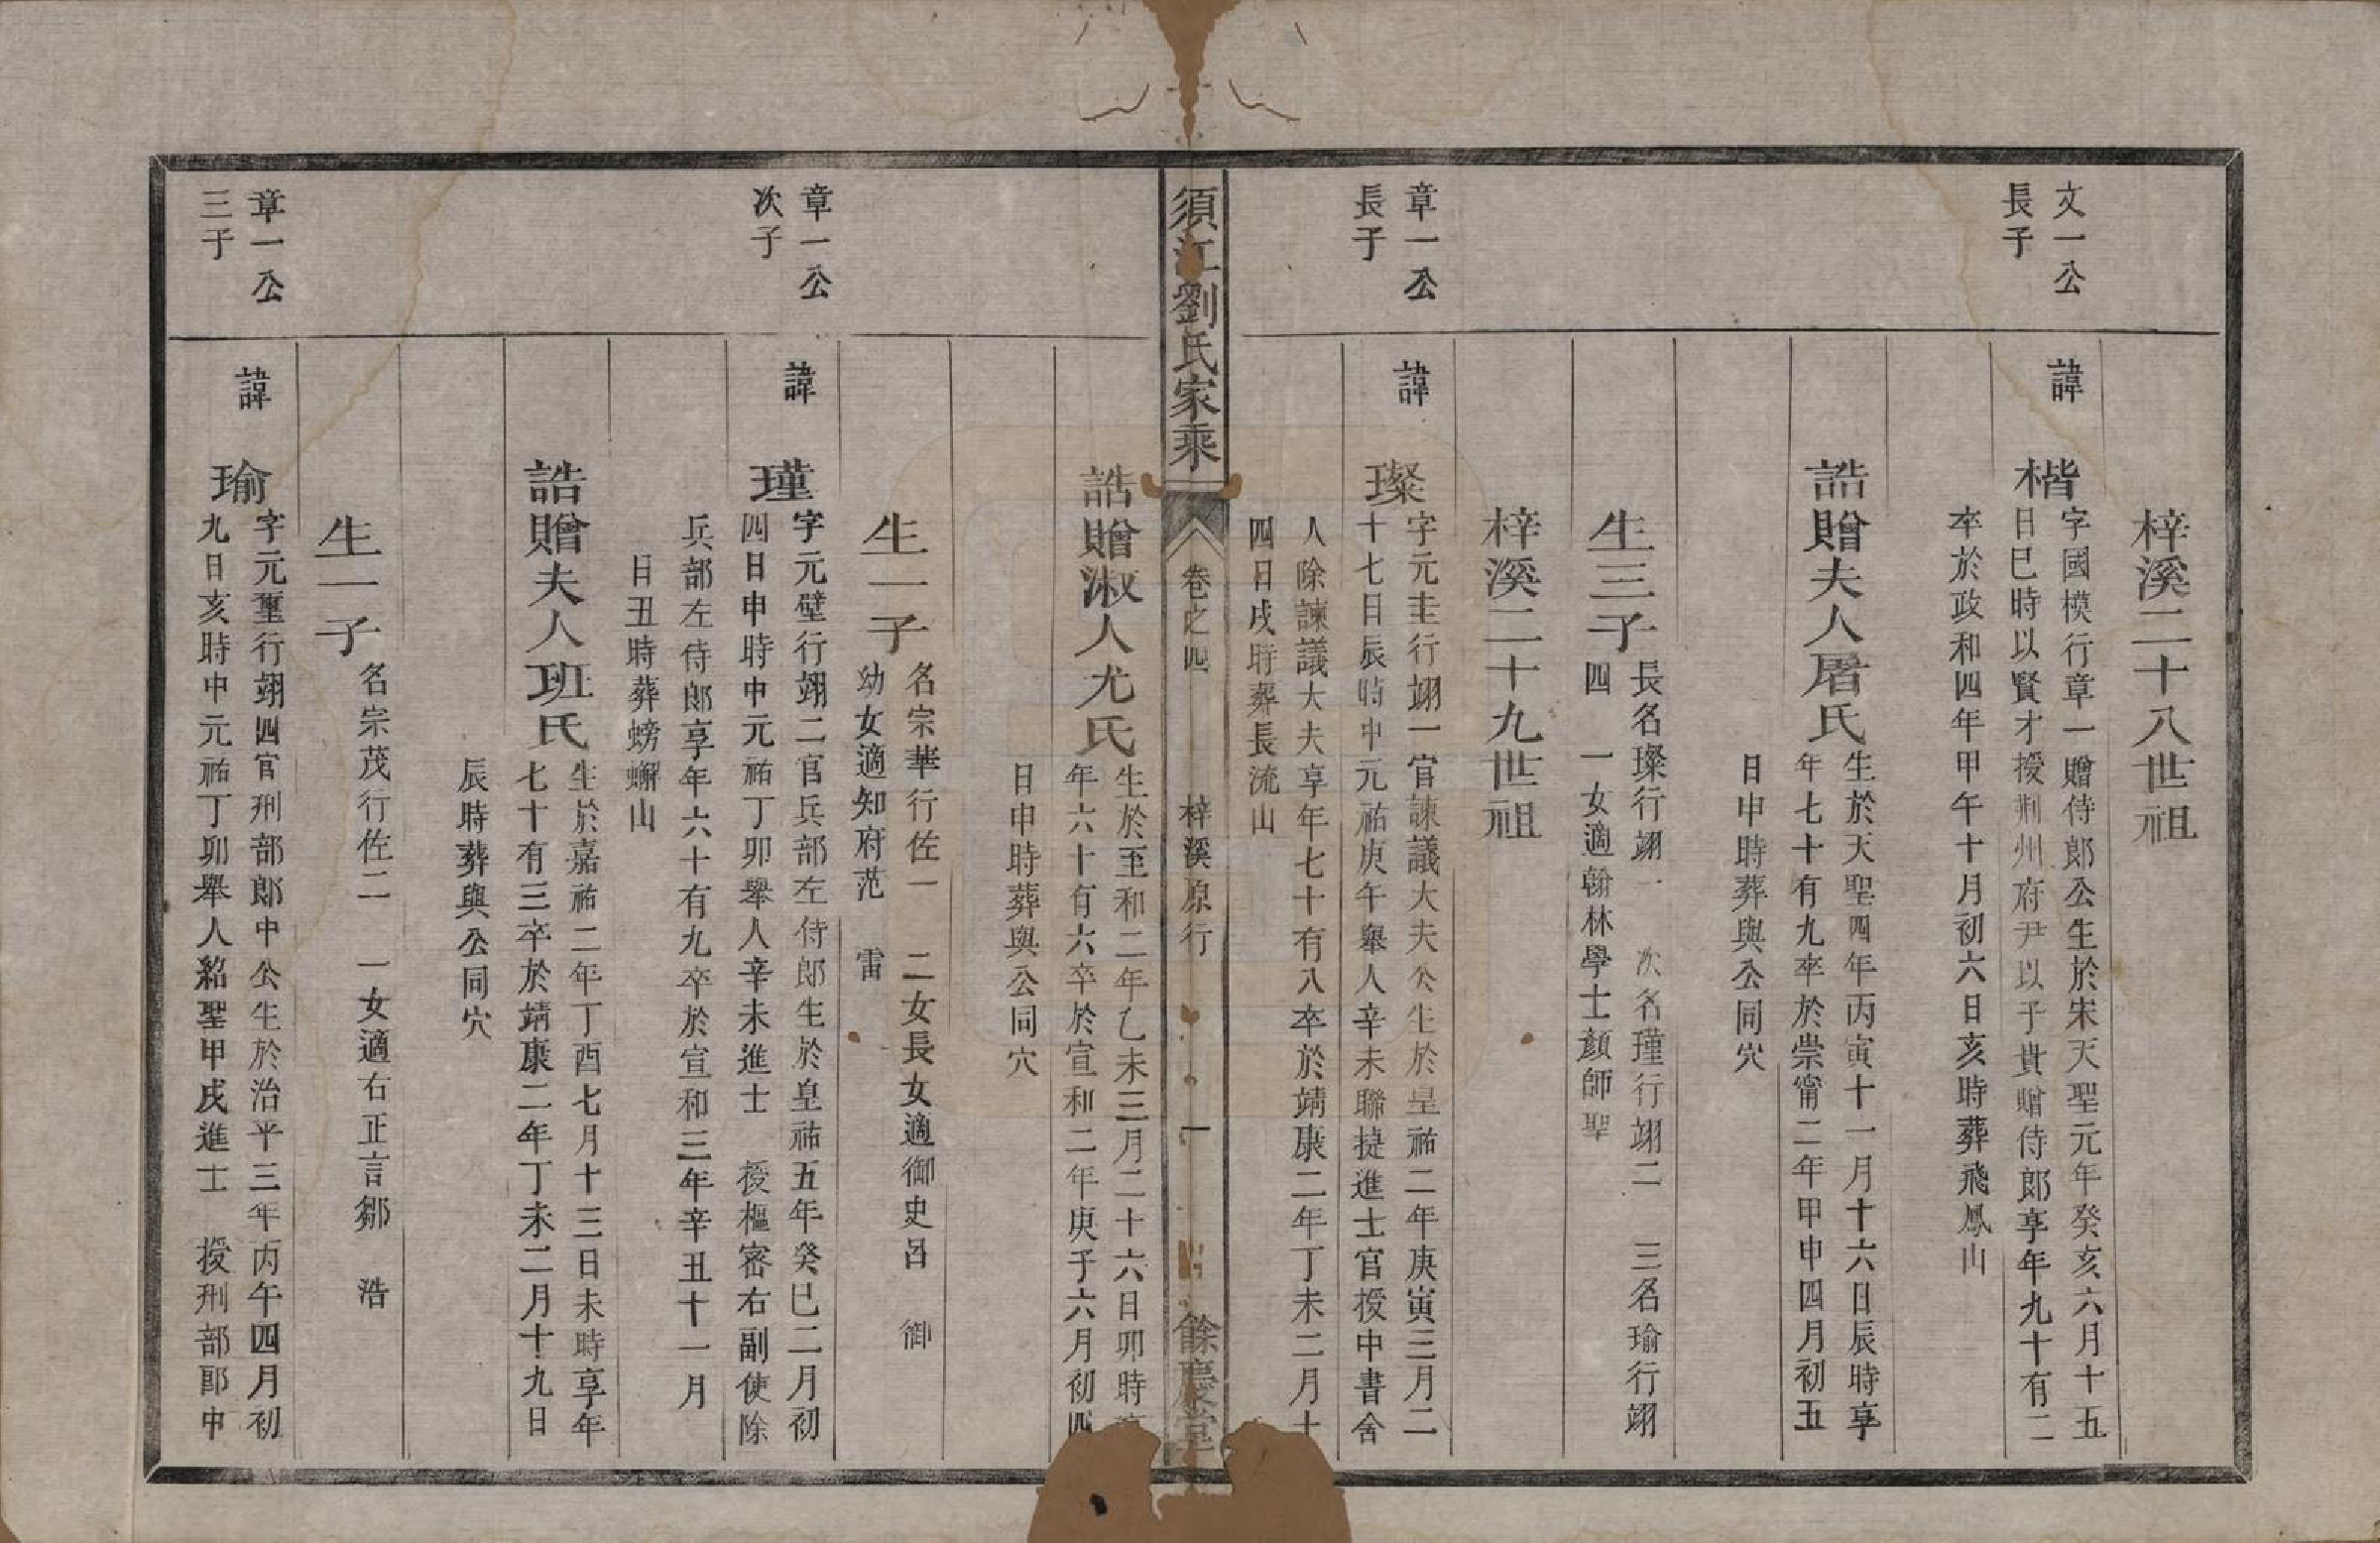 梓溪二十八世祖
文一公
長子
諱
楷
字國模行章一贈侍郎公生於宋天聖元年癸亥六月十五
日巳時以賢才授荆州府尹以子貴贈侍郎享年九十有二
卒於政和四年甲午十月初六日亥時葬飛鳳山
誥贈夫人屠氏
生於天聖四年丙寅十一月十六日辰時享
年七十有九卒於崇甯二年甲申四月初五
日申時葬與公同穴
生三子
長名璨行翊一 次名瑾行翊二 三名瑜行翊
四 一女適翰林學士顏師聖
梓溪二十九世祖
章一公
長子
諱
璨
字元圭行翊一官諫議大夫公生於皇祐二年庚寅三月二
十七日辰時中元祐庚午舉人辛未聯捷進士官授中書舍
人除諫議大夫享年七十有八卒於靖康二年丁未二月十
四日戌時葬長流山
須江劉氏家乘
卷之四
梓溪原行
一
餘慶堂
誥贈淑人尤氏
生於至和二年乙未三月二十六日卯時
年六十有六卒於宣和二年庚子六月初四
日申時葬與公同穴
生一子
名宗華行佐一 二女長女適御史呂 御
幼女適知府范 雷
章一公
次子
諱
瑾
字元壁行翊二官兵部左侍郎生於皇祐五年癸巳二月初
四日申時中元祐丁卯舉人辛未進士 授樞密右副使除
兵部左侍郎享年六十有九卒於宣和三年辛丑十一月
日丑時葬螃蠏山
誥贈夫人班氏
生於嘉祐二年丁酉七月十三日未時享年
七十有三卒於靖康二年丁未二月十九日
辰時葬與公同穴
生一子
名宗茂行佐二 一女適右正言鄒 浩
章一公
三子
諱
瑜
字元璽行翊四官刑部郎中公生於治平三年丙午四月初
九日亥時中元祐丁卯舉人紹聖甲戌進士 授刑部郎中